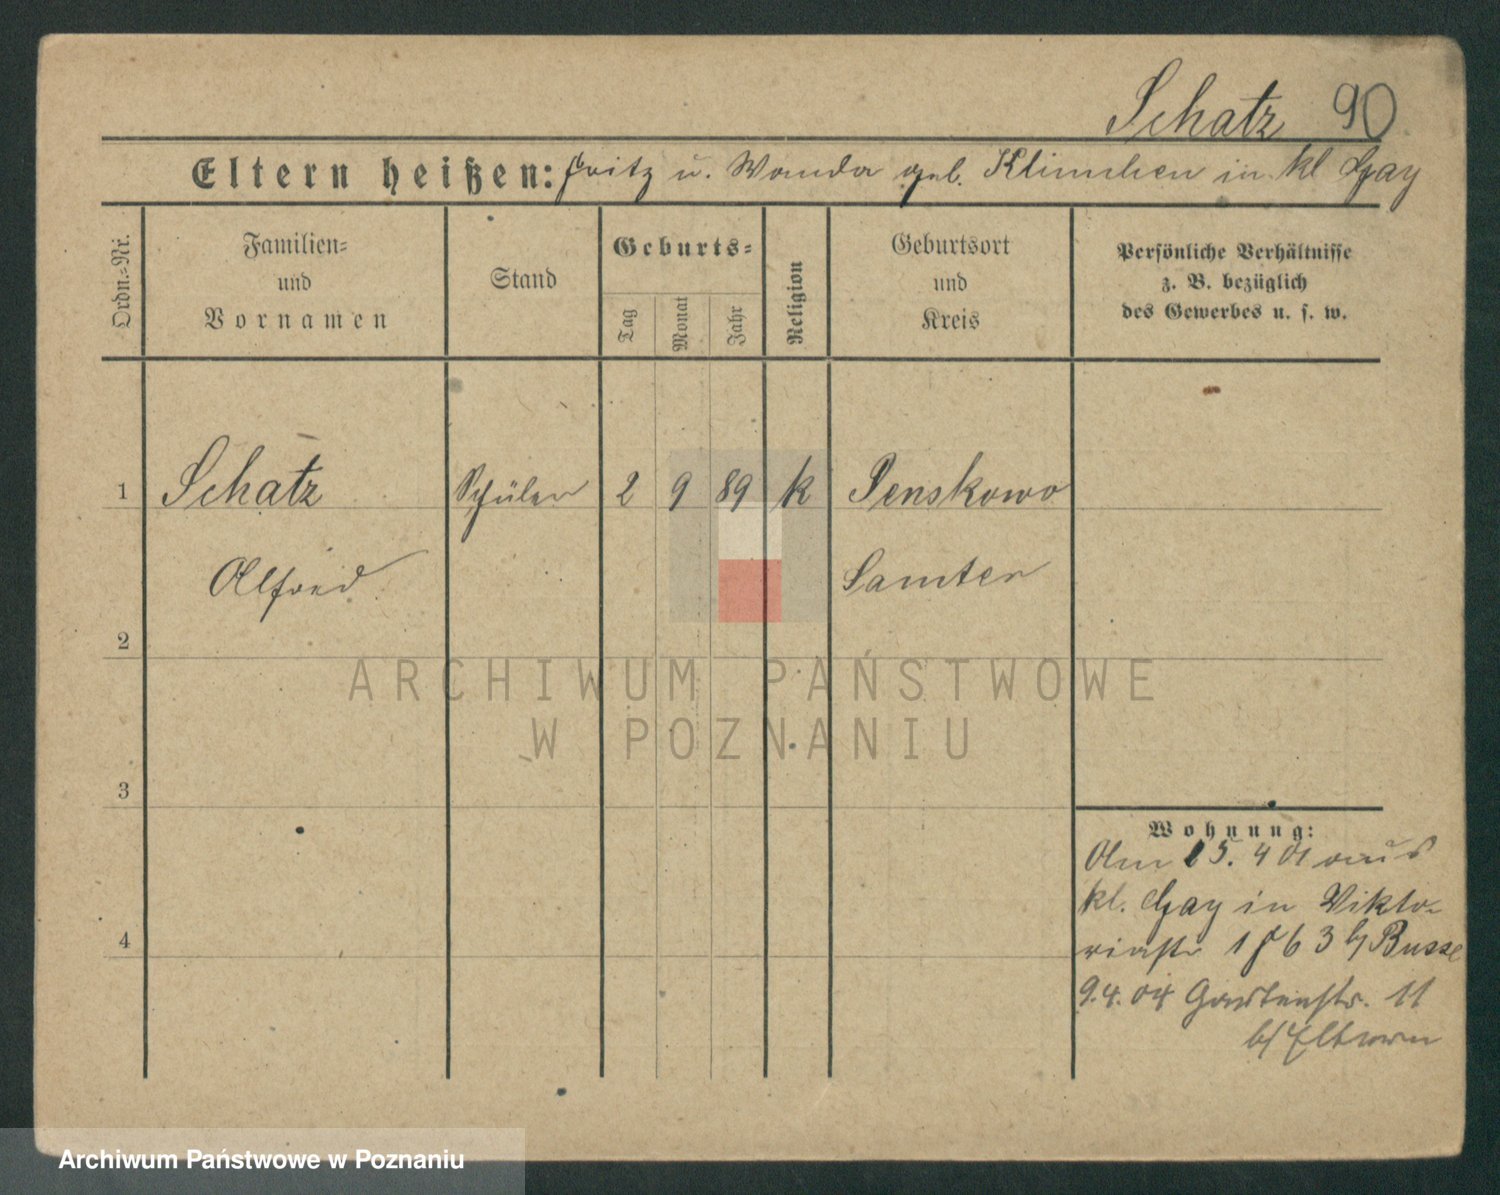 Schatz 90
Eltern heißen: Fritz u. Wanda geb. Klimchen in kl Gay
Ordn.=Nr.
Familien=
und
Vornamen
Stand
Geburts=
Tag
Monat
Jahr
Religion
Geburtsort
und
Kreis
Persönliche Verhältnisse
z. B. bezüglich
des Gewerbes u. s. w.
1 Schatz Schüler 2 9 89 k Penskowo
Alfred Samter
2
3
4
Wohnung:
Am 15. 4 01 aus
kl. Gay in Vikto-
riastr 1 63 b/ Busse
9.4.04 Gartenstr. 11
b/ Eltern
ARCHIWUM PAŃSTWOWE
W POZNANIU
Archiwum Państwowe w Poznaniu